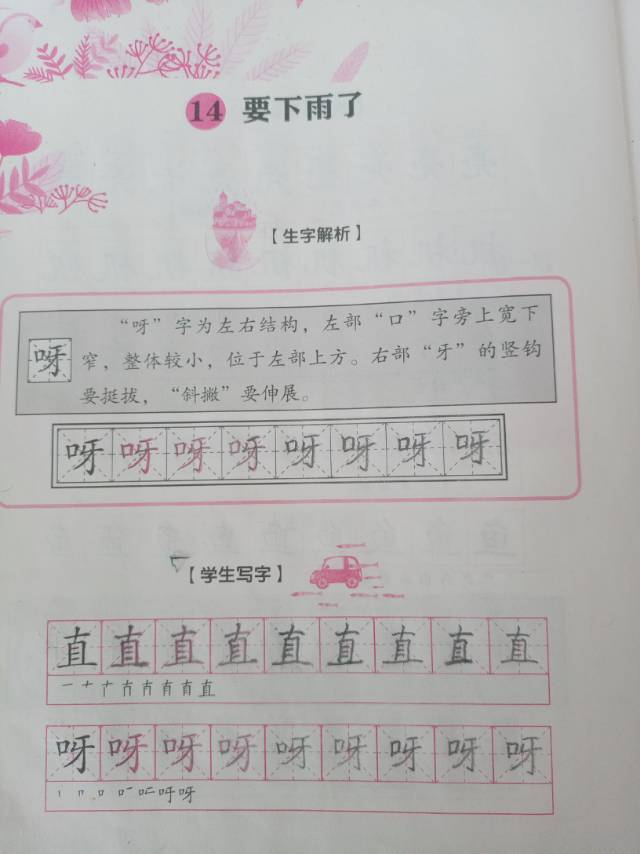 14 要下雨了
【生字解析】
呀
“呀”字为左右结构，左部“口”字旁上宽下
窄，整体较小，位于左部上方。右部“牙”的竖钩
要挺拔，“斜撇”要伸展。
呀呀呀呀呀呀呀呀
【学生写字】
直直直直直直直直直
呀呀呀呀呀呀呀呀呀